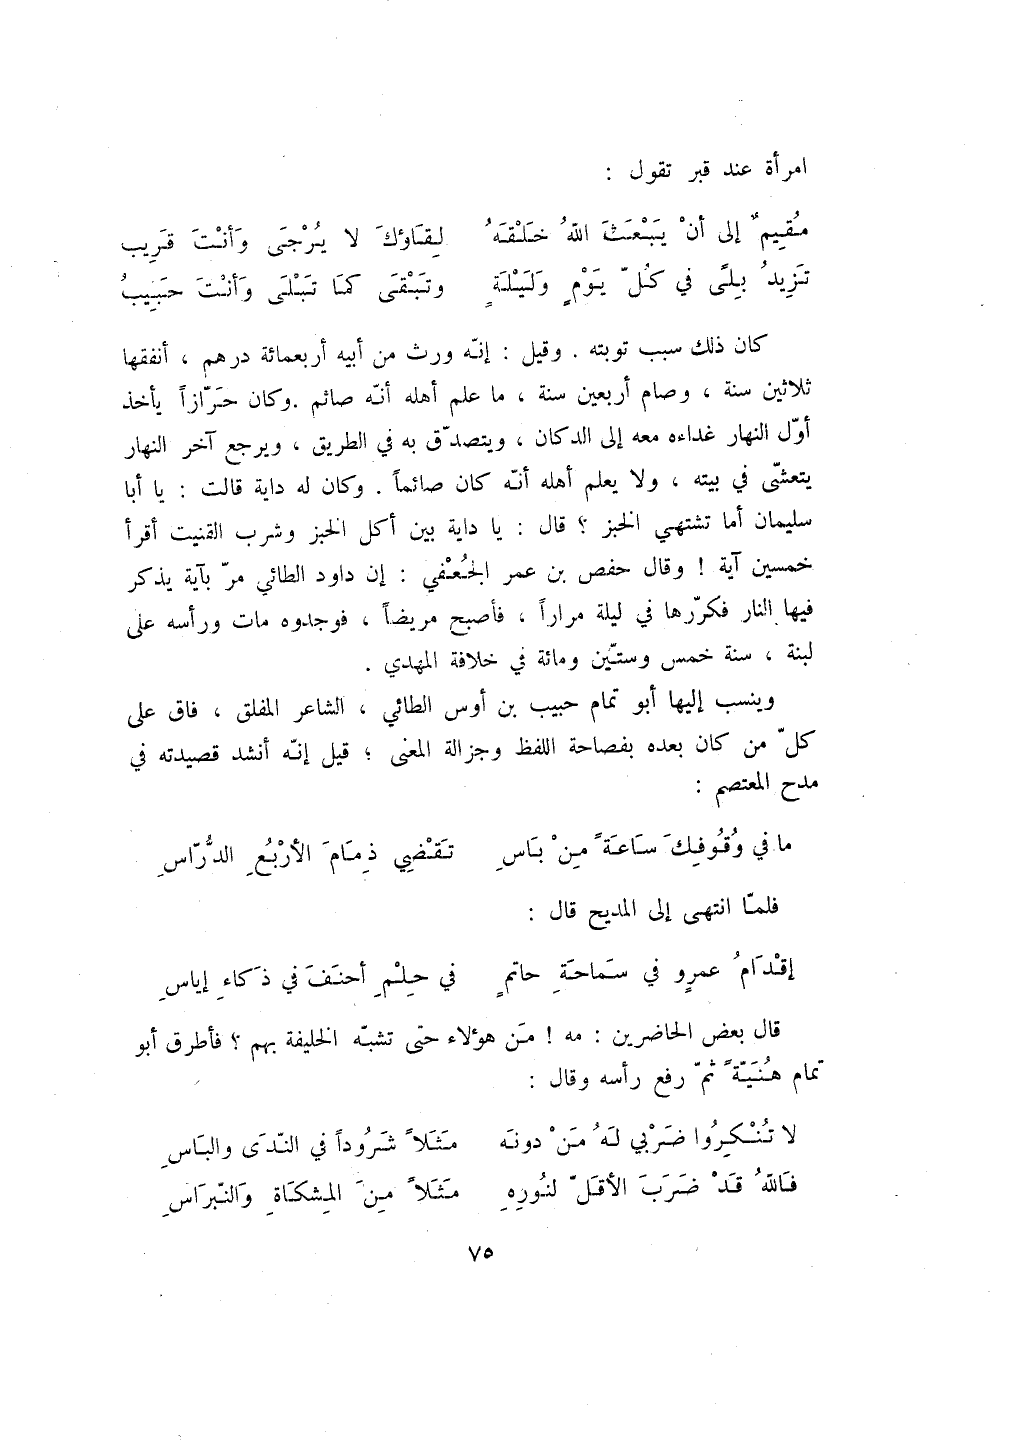 امرأة عند قبر تقول :
مُقِيمٌ إلى أنْ يَبْعَثَ اللهُ خَلْقَهُ لِقَاؤكَ لا يُرْجَى وَأنْتَ قَرِيب
تَزِيدُ بِلًى في كُلّ يَوْمٍ وَلَيْلَةٍ وتَبْقَى كمَا تَبْلَى وَأنْتَ حَبِيبُ
كان ذلك سبب توبته . وقيل : إنّه ورث من أبيه أربعمائة درهم ، أنفقها
ثلاثين سنة ، وصام أربعين سنة ، ما علم أهله أنّه صائم .وكان حَرّازاً يأخذ
أوّل النهار غداءه معه إلى الدكان ، ويتصدّق به في الطريق ، ويرجع آخر النهار
يتعشّى في بيته ، ولا يعلم أهله أنّه كان صائماً . وكان له داية قالت : يا أبا
سليمان أما تشتهي الخبز ؟ قال : يا داية بين أكل الخبز وشرب القنيت أقرأ
خمسين آية ! وقال حفص بن عمر الجُعْفي : إن داود الطائي مرّ بآية يذكر
فيها النار فكرّرها في ليلة مراراً ، فأصبح مريضاً ، فوجدوه مات ورأسه على
لبنة ، سنة خمس وستّين ومائة في خلافة المهدي .
وينسب إليها أبو تمام حبيب بن أوس الطائي ، الشاعر المفلق ، فاق على
كلّ من كان بعده بفصاحة اللفظ وجزالة المعنى ؛ قيل إنّه أنشد قصيدته في
مدح المعتصم :
ما في وُقُوفِكَ سَاعَةً مِنْ بَاسِ تَقْضِي ذِمَامَ الأرْبُعِ الدُّرّاسِ
فلمّا انتهى إلى المديح قال :
إقْدَامُ عمرٍو في سَماحَةِ حاتمٍ في حِلْمِ أحنَفَ في ذَكاءِ إياسِ
قال بعض الحاضرين : مه ! مَن هؤلاء حتى تشبّه الخليفة بهم ؟ فأطرق أبو
تمام هُنَيّةً ثمّ رفع رأسه وقال :
لا تُنْكِرُوا ضَرْبي لَهُ مَنْ دونَه مَثَلاً شَرُوداً في النّدَى والبَاسِ
فَاللهُ قَدْ ضَرَبَ الأقَلّ لنُورِهِ مَثَلاً مِنَ المِشكَاةِ وَالنّبرَاسِ
٧٥